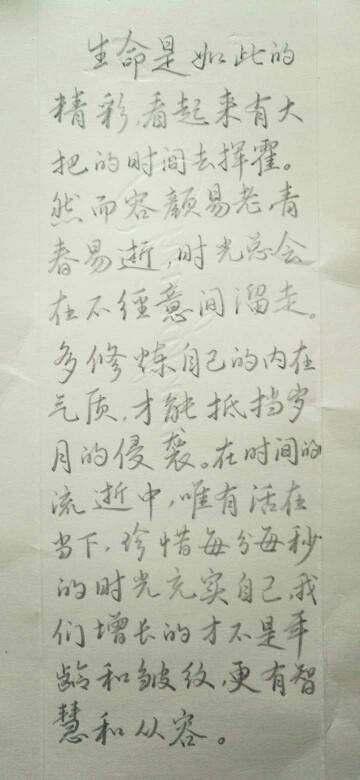 生命是如此的
精彩,看起来有大
把的时间去挥霍。
然而容颜易老,青
春易逝,时光总会
在不经意间溜走。
多修炼自己的内在
气质,才能抵挡岁
月的侵袭。在时间的
流逝中,唯有活在
当下,珍惜每分每秒
的时光充实自己,我
们增长的才不是年
龄和皱纹,更有智
慧和从容。